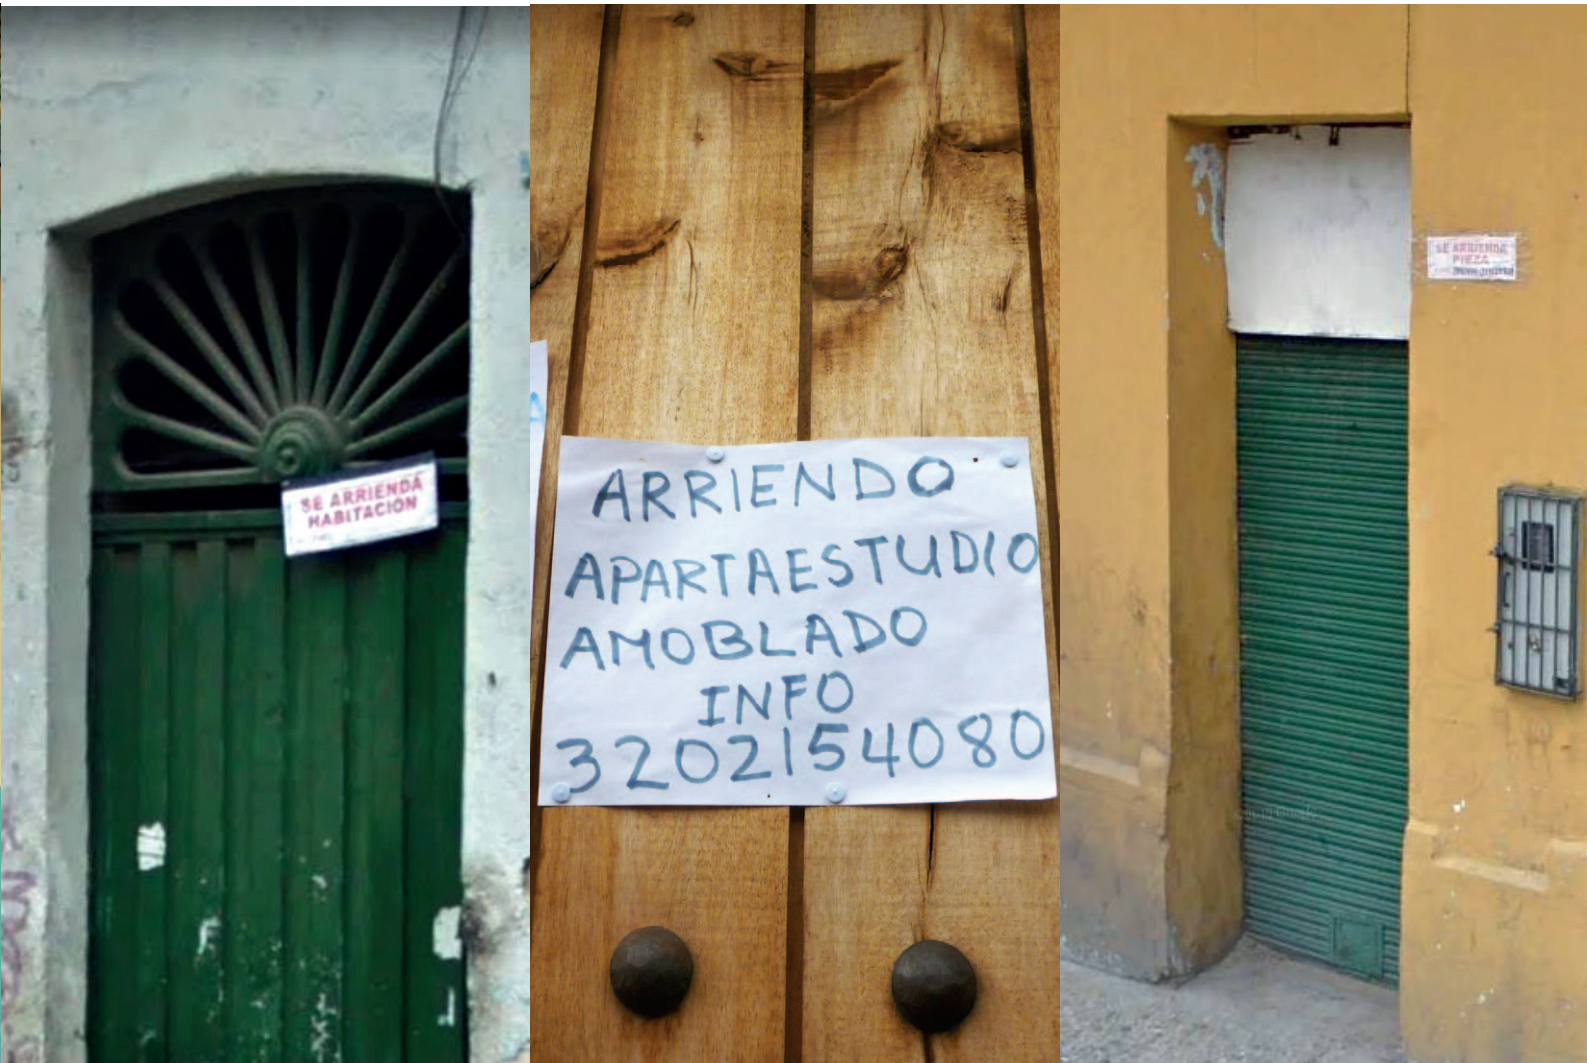 SE ARRIENDA
HABITACIÓN
ARRIENDO
APARTAESTUDIO
AMOBLADO
INFO
3202154080
SE ARRIENDA
PIEZA